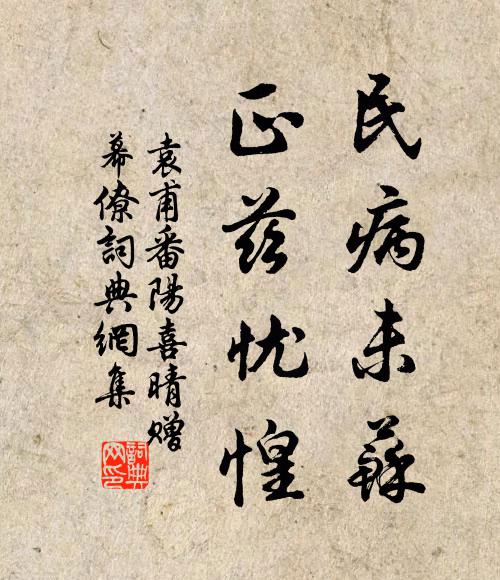 民病未蘇
正茲忧惶
袁甫番陽喜晴赠
幕僚詞典網集
詞典网印